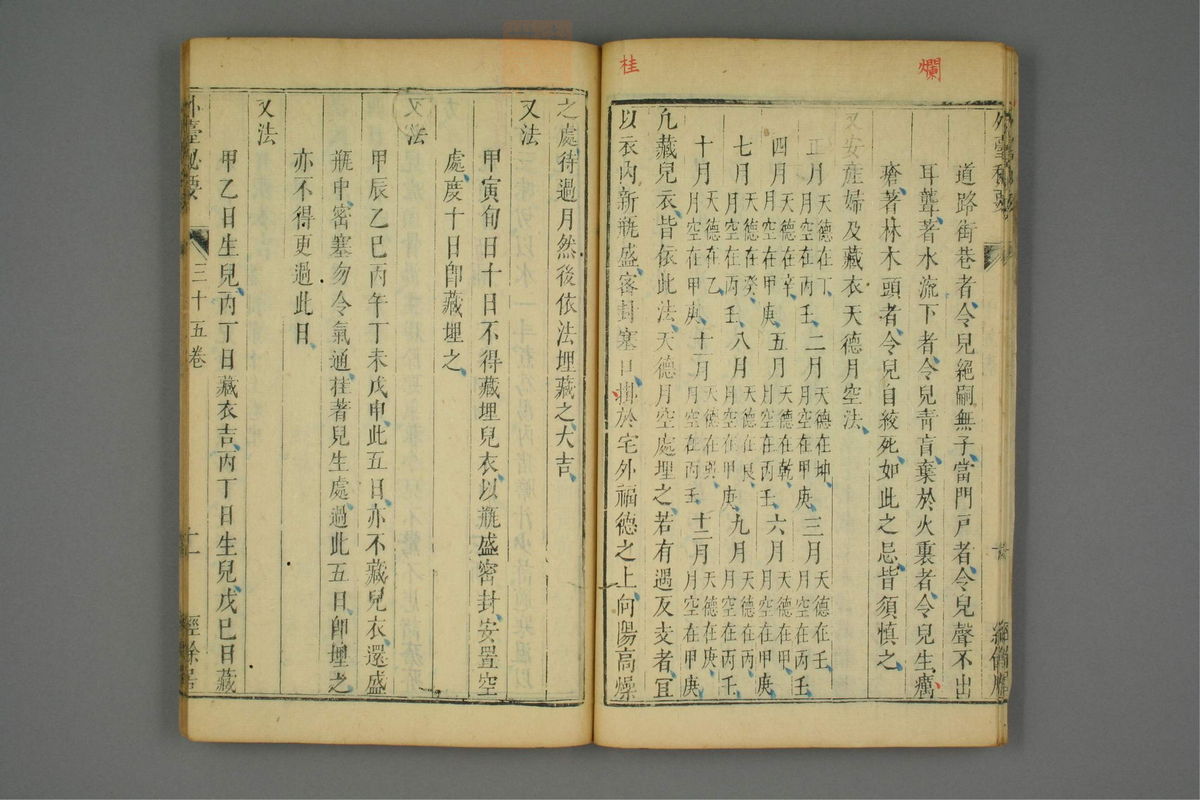 爛
桂
道路街巷者令兒絕嗣無子當門戸者令兒聲不出
耳聾著水流下者令兒靑盲棄於火裏者令兒生癘
瘡著林木頭者令兒自絞死如此之忌皆須慎之
又安產婦及藏衣天德月空法
正月天德在丁月空在丙壬二月天德在坤月空在甲庚三月天德在壬月空在丙壬
四月天德在辛月空在甲庚五月天德在乾月空在丙壬六月天德在甲月空在甲庚
七月天德在癸月空在丙壬八月天德在艮月空在甲庚九月天德在丙月空在丙壬
十月天德在乙月空在甲庚十一月天德在巽月空在丙壬十二月天德在庚月空在甲庚
凢藏兒衣皆依此法天德月空處埋之若有遇反支者冝
以衣內新瓶盛密封塞口掛於宅外福德之上向陽高燥
之處待過月然後依法埋藏之大吉
又法
甲寅旬日十日不得藏埋兒衣以瓶盛密封安置空
處度十日卽藏埋之
又法
甲辰乙巳丙午丁未戊申此五日亦不藏兒衣還盛
瓶中密塞勿令氣通挂著兒生處過此五日卽埋之
亦不得更過此日
又法
甲乙日生兒丙丁日藏衣吉丙丁日生兒戊巳日藏
外臺秘要
三十五卷
十一
經餘居